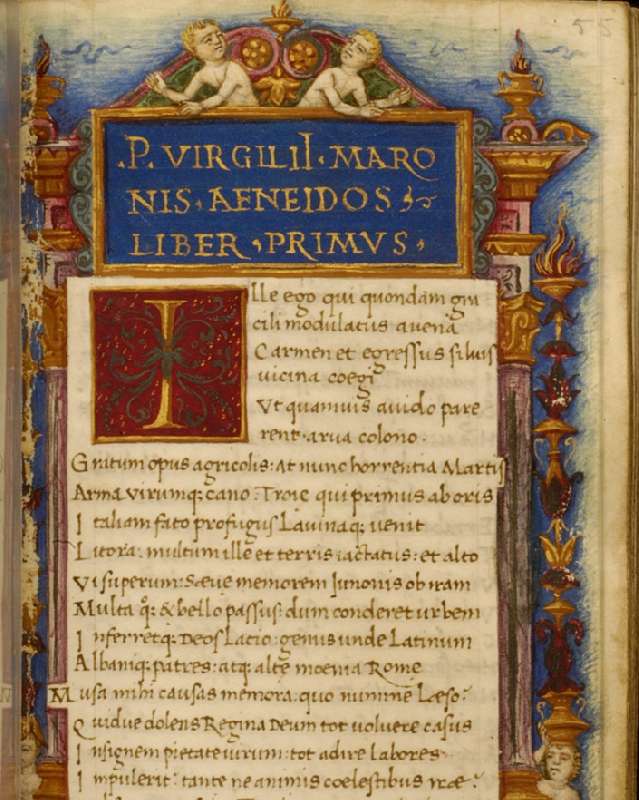 55
.P. VIRGILII. MARO
NIS. AENEIDOS
LIBER, PRIMVS,
Ille ego qui quondam gra
cili modulatus auena
Carmen et egressus siluis
uicina coegi
Vt quamuis auido pare
rent arua colono.
Gratum opus agricolis: At nunc horrentia Martis
Arma uirumq; cano: Troie qui primus ab oris
Italiam fato profugus Lauinaq; uenit
Litora: multum ille et terris iactatus: et alto
Vi superum: Saeue memorem Iunonis ob iram
Multa q̃: & bello passus: dum conderet urbem
Inferretq; Deos Latio: genus unde Latinum
Albaniq; patres: atq; alte moenia Rome
Musa mihi causas memora: quo numine Laeso?
Quidue dolens Regina Deum tot uoluere casus
Insignem pietate uirum: tot adire Labores
Impulerit: tante ne animis coelestibus irae?